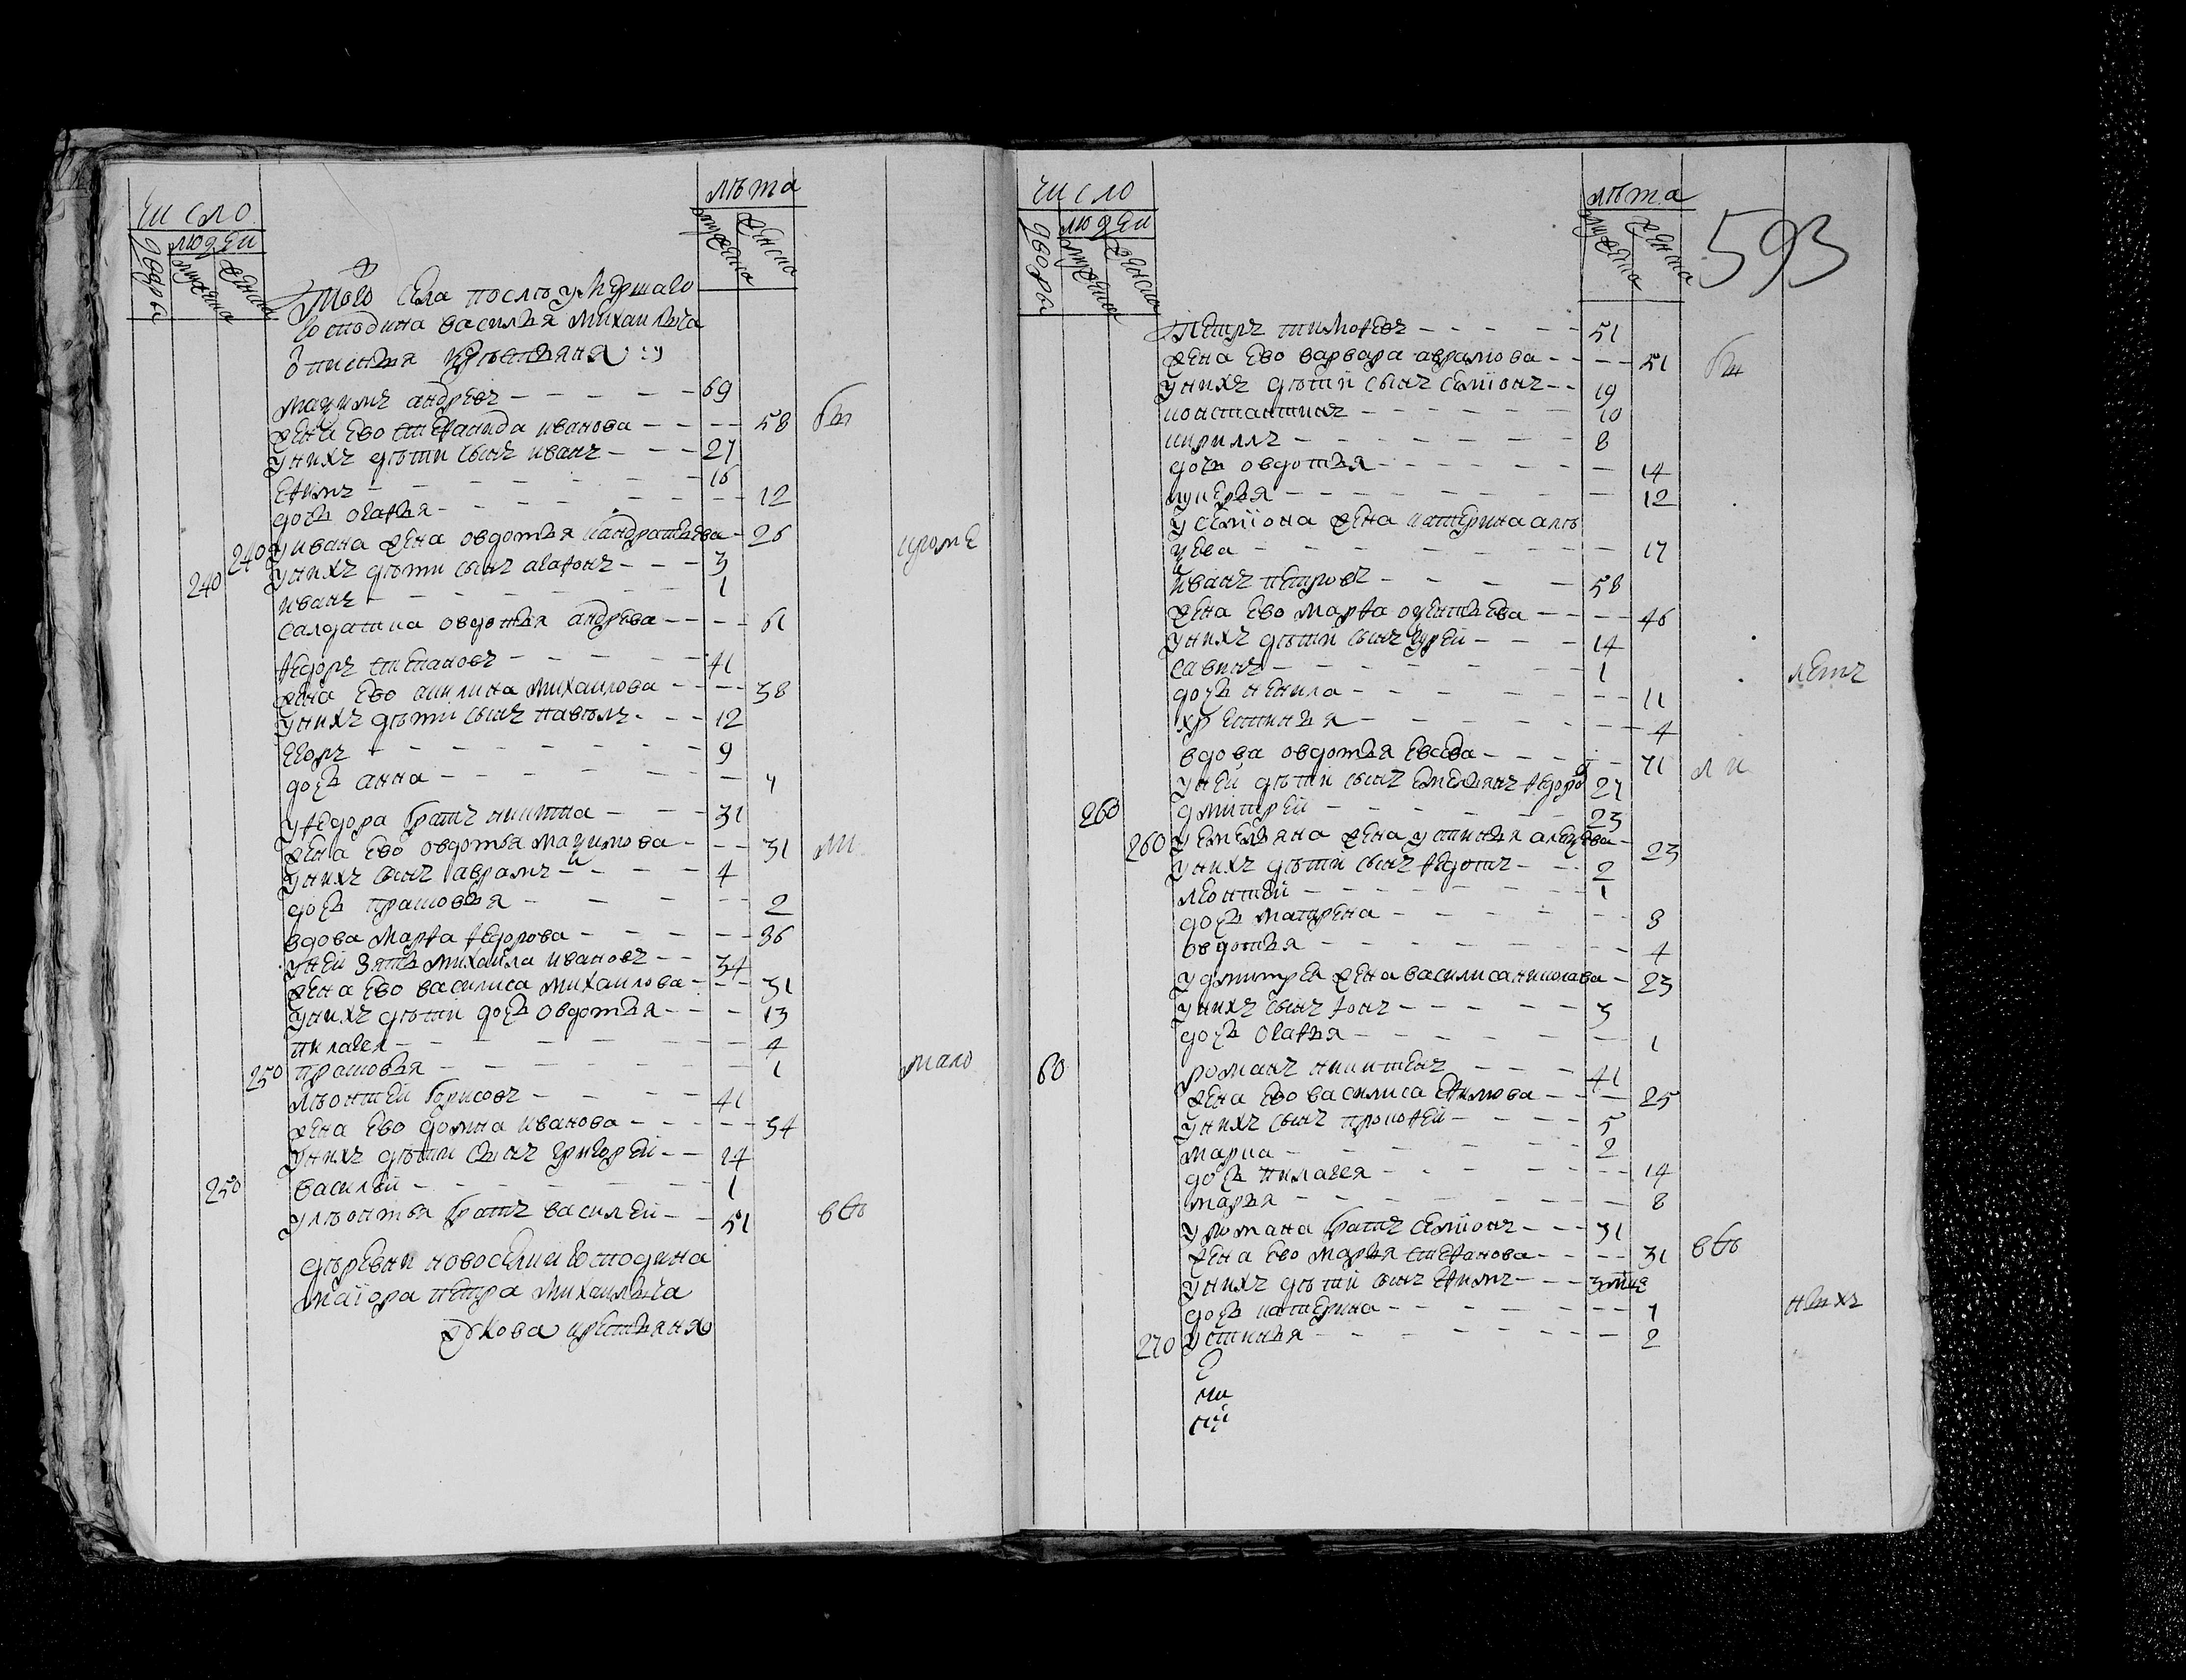 число
людеи
дворы
мужеска
женска
лѣта
мужеска
женска
Того села послѣ умершаго
господина василья михаилыча
крестьяня
мазимъ андревъ 69
жена ево степанида иванова 58 бы
у нихъ дѣти сынъ иванъ 27
ефимъ 16
дочь огафья 12
240 у ивана жена овдотья кандратьева 26 кроме
240 у нихъ дѣти сынъ агафонъ 3
иванъ 1
салдатка овдотья андрева 61
федоръ степановъ 41
жена ево акилина михаилова 38
у нихъ дѣти сынъ павѣлъ 12
егоръ 9
дочь анна 4
у федора братъ никитка 31
жена ево овдотья мазимова 31 ли
у нихъ сынъ аврамъ 4
дочь прасковья 2
вдова марфа федорова 36
у неи зять михаила ивановъ 34
жена ево василиса михаилова 31
у нихъ дѣти дочь овдотья 13
пилагея 4
250 прасковья 1 тако
лѣонтеи борисовъ 41
жена ево домна иванова 34
у нихъ дѣти сынъ григореи 14
250 василеи 1
у лѣонтья братъ василеи 51 въ
дѣревни новоселки господина
маіора петра михаилыча
крестьяня
число
людеи
дворы
мужеска
женска
лѣта
мужеска
женска
593
петръ тимофевъ 51
жена ево варвара аврамова 51
у нихъ дѣти сынъ семіонъ 19
константинъ 10
кирилъ 8
дочь овдотья 14
лукерья 12
у семіона жена катерина алѣ
ѯева 17
иванъ петровъ 58
жена ево марфа 46
у нихъ дѣти сынъ гуреи 14
савинъ 1 летъ
дочь ненила 11
хрестинья 4
вдова овдотья 71 ли
у неи дѣти сынъ емельянъ федоров 27
260 дмитреи 23
260 у емельяна жена устинья алеѯева 23
у нихъ дѣти сынъ федотъ 2
леонтеи 1
дочь матрена 8
овдотья 4
у дмитрея жена василиса николаева 23
у нихъ сынъ фонъ 3
дочь огафья 1
60 романъ никитинъ 41
жена ево василиса ефимова 25
у нихъ сынъ прокофеи 5
марка 2
дочь пилагея 14
марья 8
у романа братъ семіонъ 31
жена ево марья степанова 31 въ
у нихъ дѣти сынъ ефимъ
дочь катерина 7 нихъ
270 устинья 2